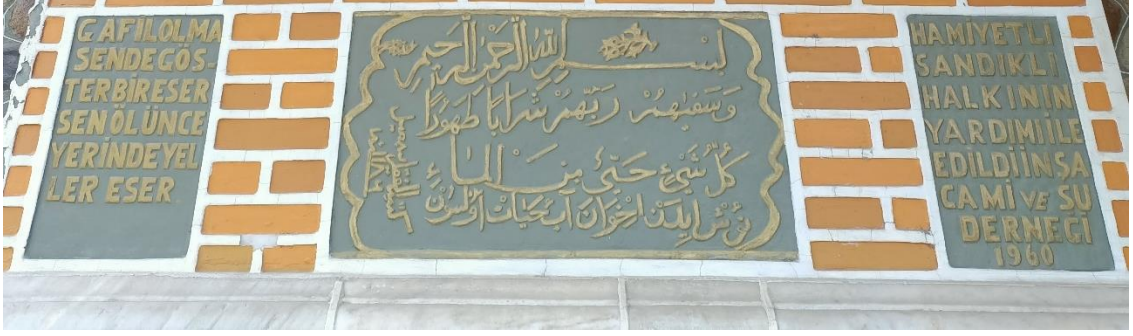 GAFİL OLMA
SENDE GÖS-
TER BİR ESER
SEN ÖLÜNCE
YERİNDE YEL
LER ESER
بسم الله الرحمن الرحيم
وسقيهم ربهم شرابا طهورا
كل شيء حي من الماء
نوش ايلين اخوان آبحيات اولسون
HAMİYETLİ
SANDIKLI
HALKININ
YARDIMI İLE
EDİLDİ İNŞA
CAMİ VE SU
DERNEĞİ
1960